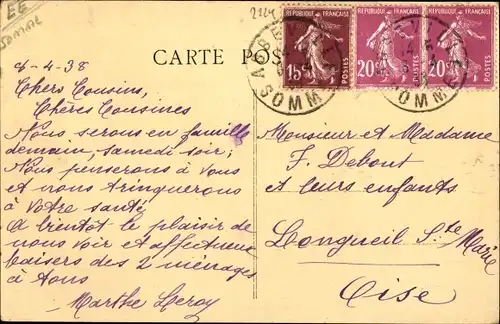 EE
SOMME
2224
CARTE POS
RÉPUBLIQUE FRANÇAISE
15c
POSTES
RÉPUBLIQUE FRANÇAISE
20c
POSTES
FRANÇAISE
20c
POSTES
ABBEVILLE
SOMME
8-4-38
Chers Cousins,
Chères Cousines
Nous serons en famille
demain, samedi soir;
Nous penserons à vous
et nous trinquerons
à votre santé
A bientôt le plaisir de
nous voir et affectueux
baisers des 2 ménages
à tous
Marthe Leroy
Monsieur et Madame
F. Debout
et leurs enfants
Longueil Ste Marie
Oise